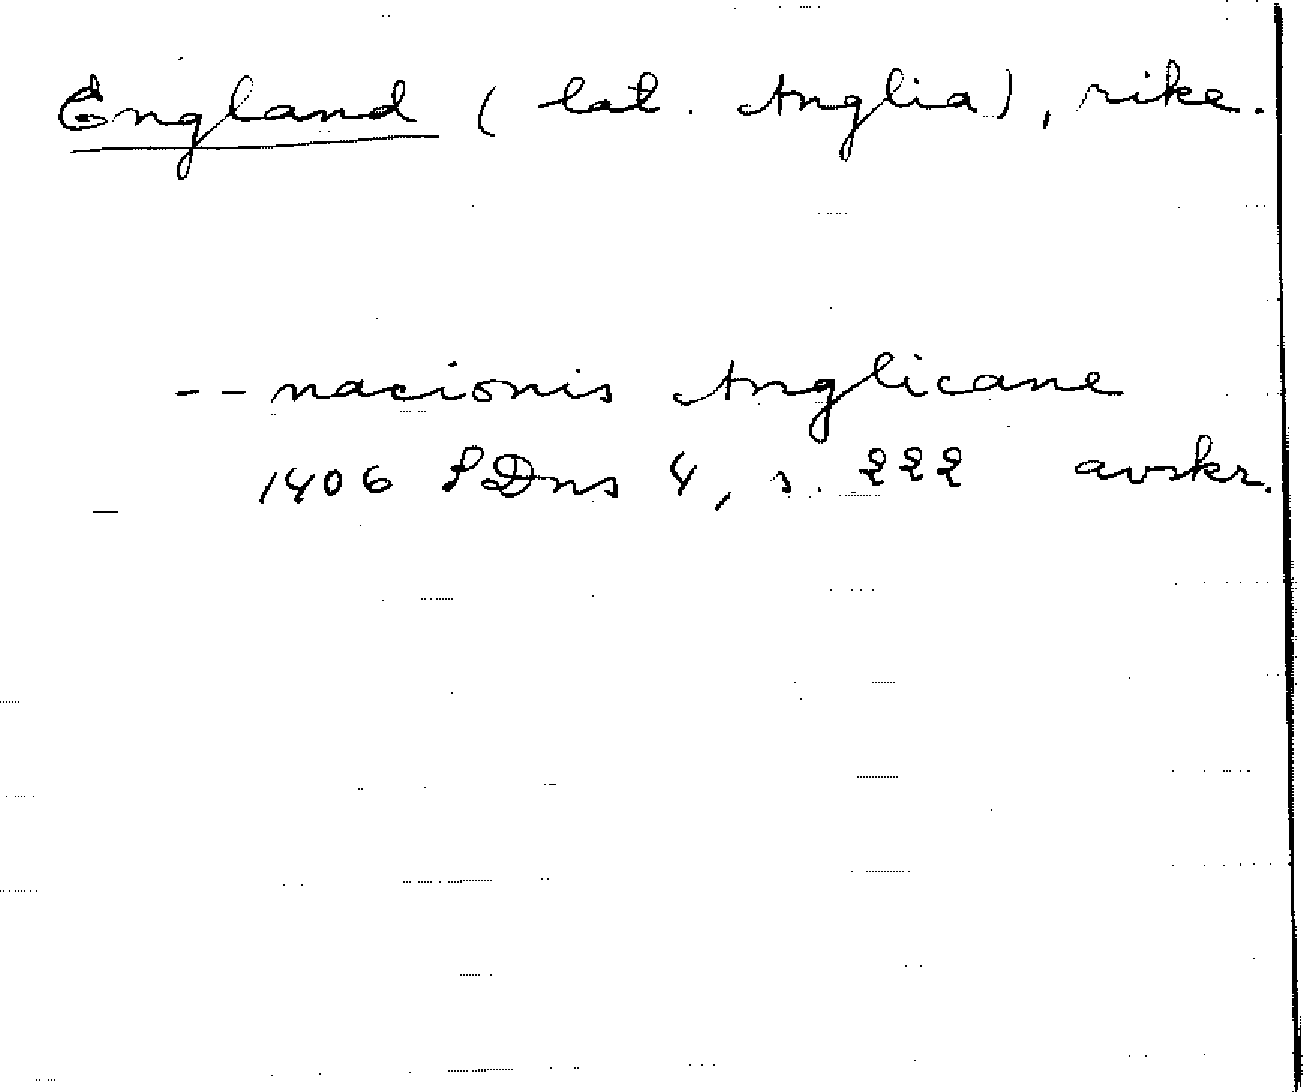 England (lat. Anglia), rike.
-- nacionis Anglicane
1406 SDns 4, s. 222 avskr.